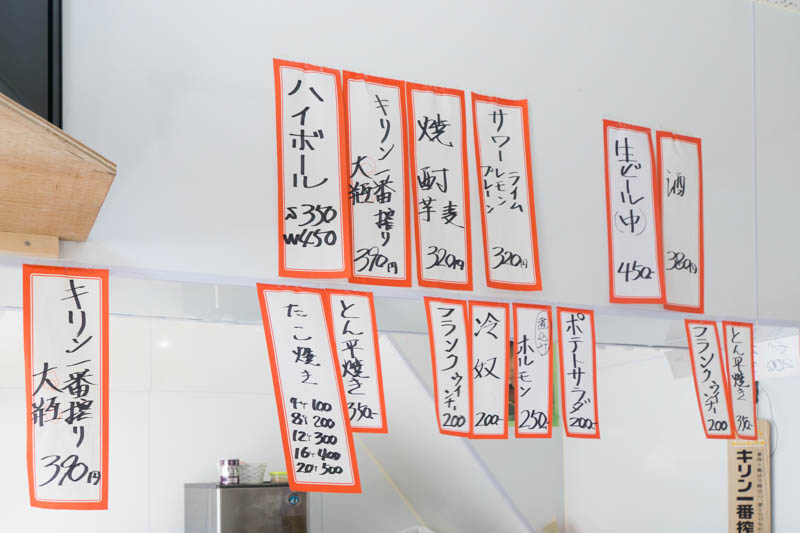 ハイボール
S350
W450
キリン一番搾り
大瓶
390円
焼酎
芋 麦
320円
サワー
レモン
ライム
プレーン
320円
生ビール(中)
450-
酒
380円
キリン一番搾り
大瓶
390円
たこ焼き
4ケ100
8ケ200
12ケ300
16ケ400
20ケ500
とん平焼き
350-
フランクウインナー
200
冷奴
200-
煮込み
ホルモン
250-
ポテトサラダ
200-
フランクウインナー
200
とん平焼き
350-
キリン一番搾